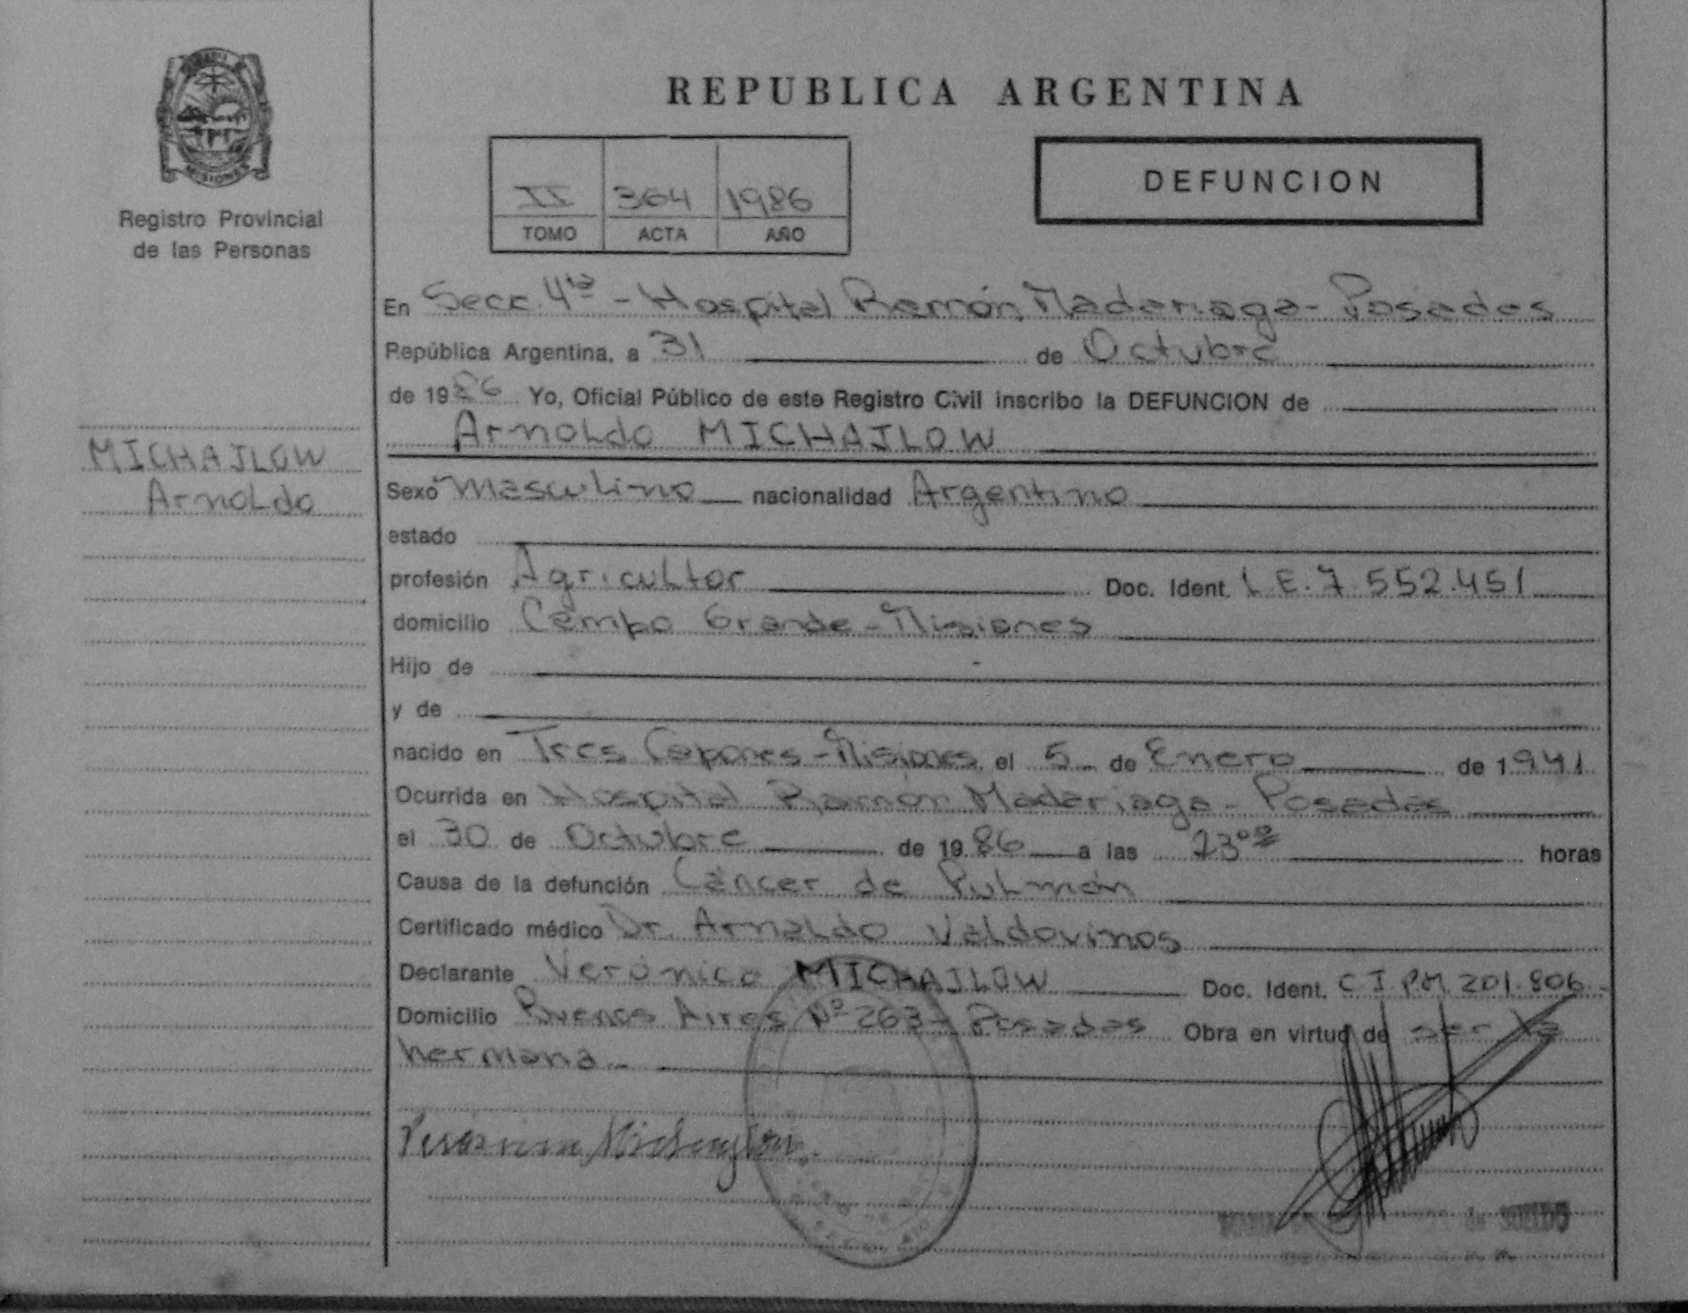 MISIONES
Registro Provincial
de las Personas
MICHAJLOW
Arnoldo
REPUBLICA ARGENTINA
II 364 1986
TOMO ACTA AÑO
DEFUNCION
En Secc. 4ta - Hospital Ramón Madariaga - Posadas
República Argentina, a 31 de Octubre
de 1986 Yo, Oficial Público de este Registro Civil inscribo la DEFUNCION de
Arnoldo MICHAJLOW
Sexo Masculino nacionalidad Argentino
estado
profesión Agricultor Doc. Ident. L.E. 7.552.451
domicilio Campo Grande - Misiones
Hijo de
y de
nacido en Tres Capones - Misiones, el 5 de Enero de 1941
Ocurrida en Hospital Ramón Madariaga - Posadas
el 30 de Octubre de 1986 a las 23 horas
Causa de la defunción Cáncer de Pulmón
Certificado médico Dr. Arnaldo Valdovinos
Declarante Verónica MICHAJLOW Doc. Ident. C I PM 201.806
Domicilio Buenos Aires Nº 263 - Posadas Obra en virtud de ser la
hermana
de SUELDO